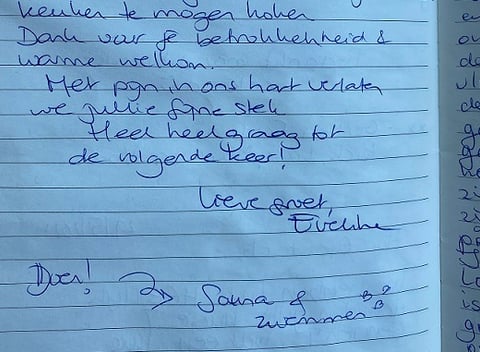 keuken te mogen koken
Dank voor je betrokkenheid &
warme welkom.
Met pijn in ons hart verlaten
we jullie fijne stek
Heel heel graag tot
de volgende keer!
Lieve groet,
Doen! → Sauna &
zwemmen